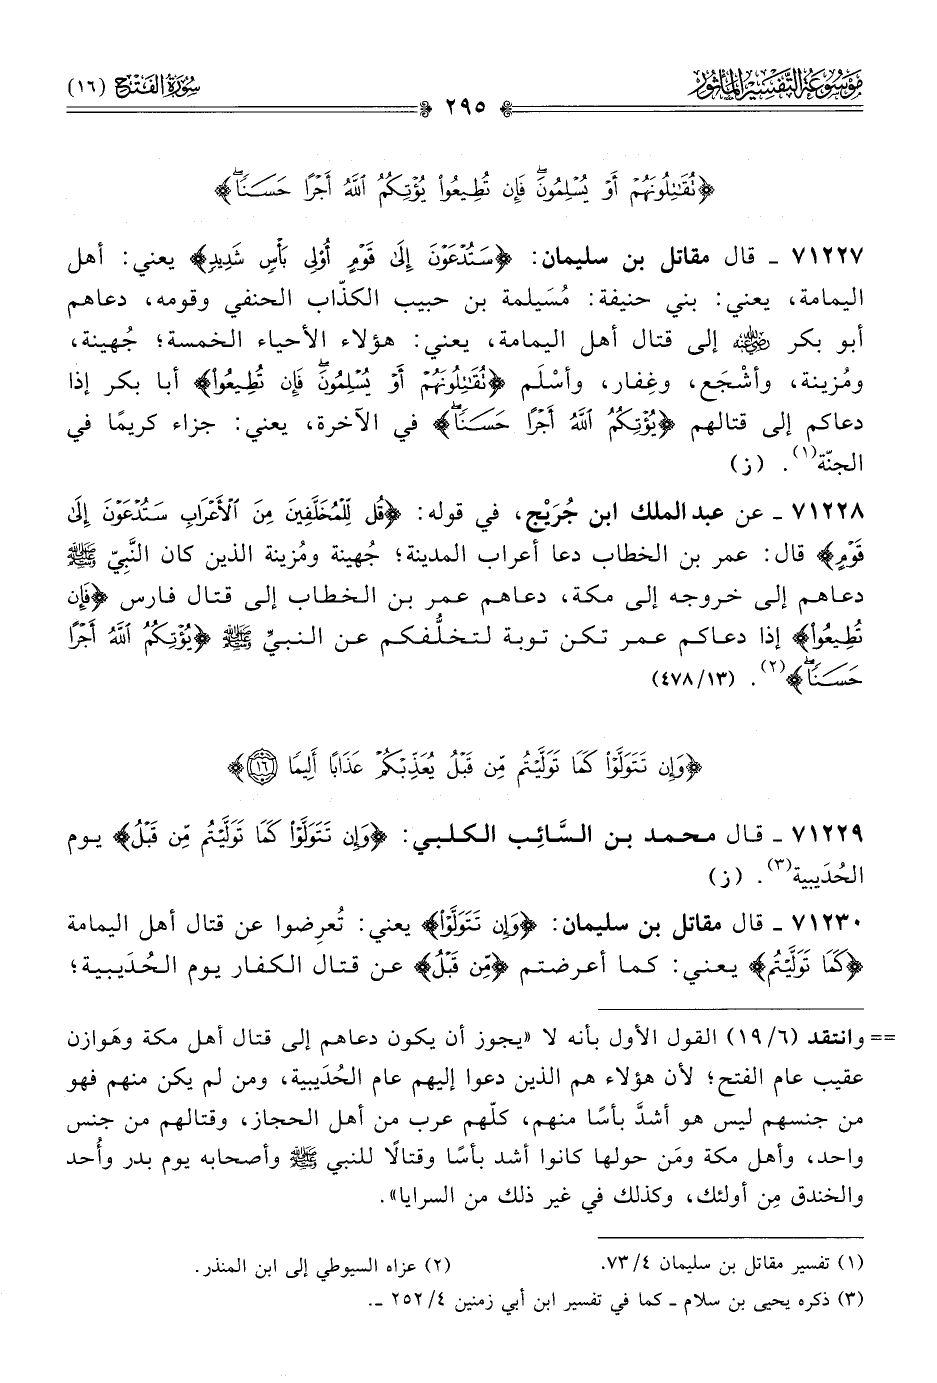 موسوعة التفسير المأثور
سورة الفتح (١٦)
٢٩٥
﴿تُقَٰتِلُونَهُمْ أَوْ يُسْلِمُونَۖ فَإِن تُطِيعُوا۟ يُؤْتِكُمُ ٱللَّهُ أَجْرًا حَسَنًاۖ﴾
٧١٢٢٧ ـ قال مقاتل بن سليمان: ﴿سَتُدْعَوْنَ إِلَىٰ قَوْمٍ أُو۟لِى بَأْسٍ شَدِيدٍ﴾ يعني: أهل
اليمامة، يعني: بني حنيفة: مُسَيلمة بن حبيب الكذّاب الحنفي وقومه، دعاهم
أبو بكر رضي الله عنه إلى قتال أهل اليمامة، يعني: هؤلاء الأحياء الخمسة؛ جُهينة،
ومُزينة، وأشْجَع، وغِفار، وأسْلَم ﴿تُقَٰتِلُونَهُمْ أَوْ يُسْلِمُونَۖ فَإِن تُطِيعُوا۟﴾ أبا بكر إذا
دعاكم إلى قتالهم ﴿يُؤْتِكُمُ ٱللَّهُ أَجْرًا حَسَنًاۖ﴾ في الآخرة، يعني: جزاء كريمًا في
الجنّة(١). (ز)
٧١٢٢٨ ـ عن عبد الملك ابن جُرَيْج، في قوله: ﴿قُل لِّلْمُخَلَّفِينَ مِنَ ٱلْأَعْرَابِ سَتُدْعَوْنَ إِلَىٰ
قَوْمٍ﴾ قال: عمر بن الخطاب دعا أعراب المدينة؛ جُهينة ومُزينة الذين كان النَّبيّ ﷺ
دعاهم إلى خروجه إلى مكة، دعاهم عمر بن الخطاب إلى قتال فارس ﴿فَإِن
تُطِيعُوا۟﴾ إذا دعاكم عمر تكن توبة لتخلُّفكم عن النبيِّ ﷺ ﴿يُؤْتِكُمُ ٱللَّهُ أَجْرًا
حَسَنًاۖ﴾(٢). (٤٧٨/١٣)
﴿وَإِن تَتَوَلَّوْا۟ كَمَا تَوَلَّيْتُم مِّن قَبْلُ يُعَذِّبْكُمْ عَذَابًا أَلِيمًا ١٦﴾
٧١٢٢٩ ـ قال محمد بن السَّائِب الكلبي: ﴿وَإِن تَتَوَلَّوْا۟ كَمَا تَوَلَّيْتُم مِّن قَبْلُ﴾ يوم
الحُدَيبية(٣). (ز)
٧١٢٣٠ ـ قال مقاتل بن سليمان: ﴿وَإِن تَتَوَلَّوْا۟﴾ يعني: تُعرِضوا عن قتال أهل اليمامة
﴿كَمَا تَوَلَّيْتُم﴾ يعني: كما أعرضتم ﴿مِّن قَبْلُ﴾ عن قتال الكفار يوم الحُدَيبية؛
== وانتقد (١٩/٦) القول الأول بأنه لا «يجوز أن يكون دعاهم إلى قتال أهل مكة وهَوازن
عقيب عام الفتح؛ لأن هؤلاء هم الذين دعوا إليهم عام الحُدَيبية، ومن لم يكن منهم فهو
من جنسهم ليس هو أشدَّ بأسًا منهم، كلّهم عرب من أهل الحجاز، وقتالهم من جنس
واحد، وأهل مكة ومَن حولها كانوا أشد بأسًا وقتالًا للنبي ﷺ وأصحابه يوم بدر وأُحد
والخندق مِن أولئك، وكذلك في غير ذلك من السرايا».
(١) تفسير مقاتل بن سليمان ٧٣/٤. (٢) عزاه السيوطي إلى ابن المنذر.
(٣) ذكره يحيى بن سلام ـ كما في تفسير ابن أبي زمنين ٢٥٢/٤ ـ.